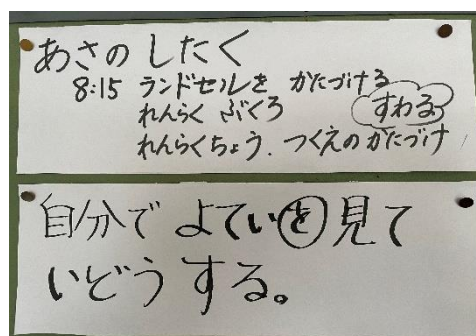 あさの したく
8:15 ランドセルを かたづける
れんらく ぶくろ
すわる
れんらくちょう. つくえの かたづけ
自分で よていを 見て
いどう する。